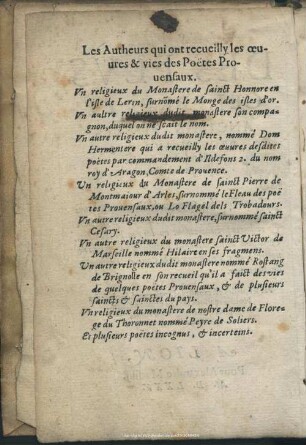 Les Autheurs qui ont recueilly les œu-
ures & vies des Poëtes Pro-
uensaux.
Vn religieux du Monastere de sainct Honnore en
l'isle de Lerin, surnõmé le Monge des isles d'or.
Vn aultre religieux dudit monastere son compa-
gnon, duquel on ne scait le nom.
Vn autre religieux dudit monastere, nommé Dom
Hermentere qui a recueilly les œuures desdites
poëtes par commandement d'Ildefons 2. du nom
roy d'Aragon, Comte de Prouence.
Un religieux du Monastere de sainct Pierre de
Montmaiour d'Arles, surnommé le Fleau des poë
tes Prouensaux, ou Lo Flagel dels Trobadours.
Vn autre religieux dudit monastere, surnommé sainct
Cesary.
Vn autre religieux du monastere sainct Victor de
Marseille nommé Hilaire en ses fragmens.
Un autre religieux dudit monastere nommé Rostang
de Brignolle en son recueil qu'il a faict des vies
de quelques poëtes Prouensaux, & de plusieurs
saincts & sainctes du pays.
Vn religieux du monastere de nostre dame de Flore-
ge du Thoronnet nommé Peyre de Soliers.
Et plusieurs poëtes incognus, & incerteins.